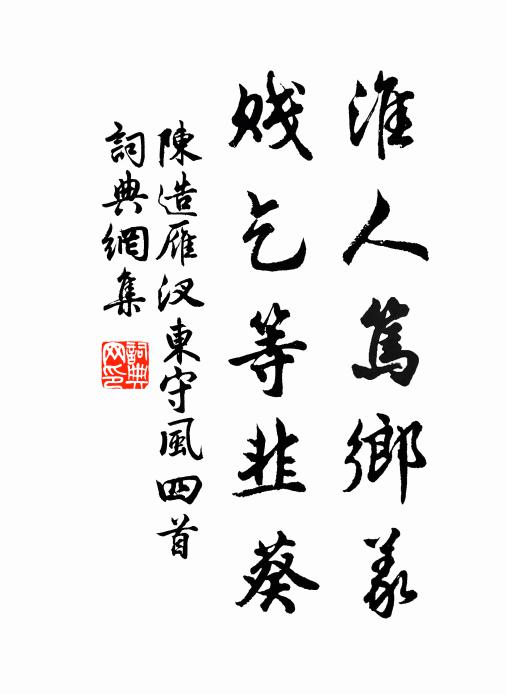 淮人篤鄉義
賤乞等韭葵
陳造雁汊東守風四首
詞典網集
詞典
网印